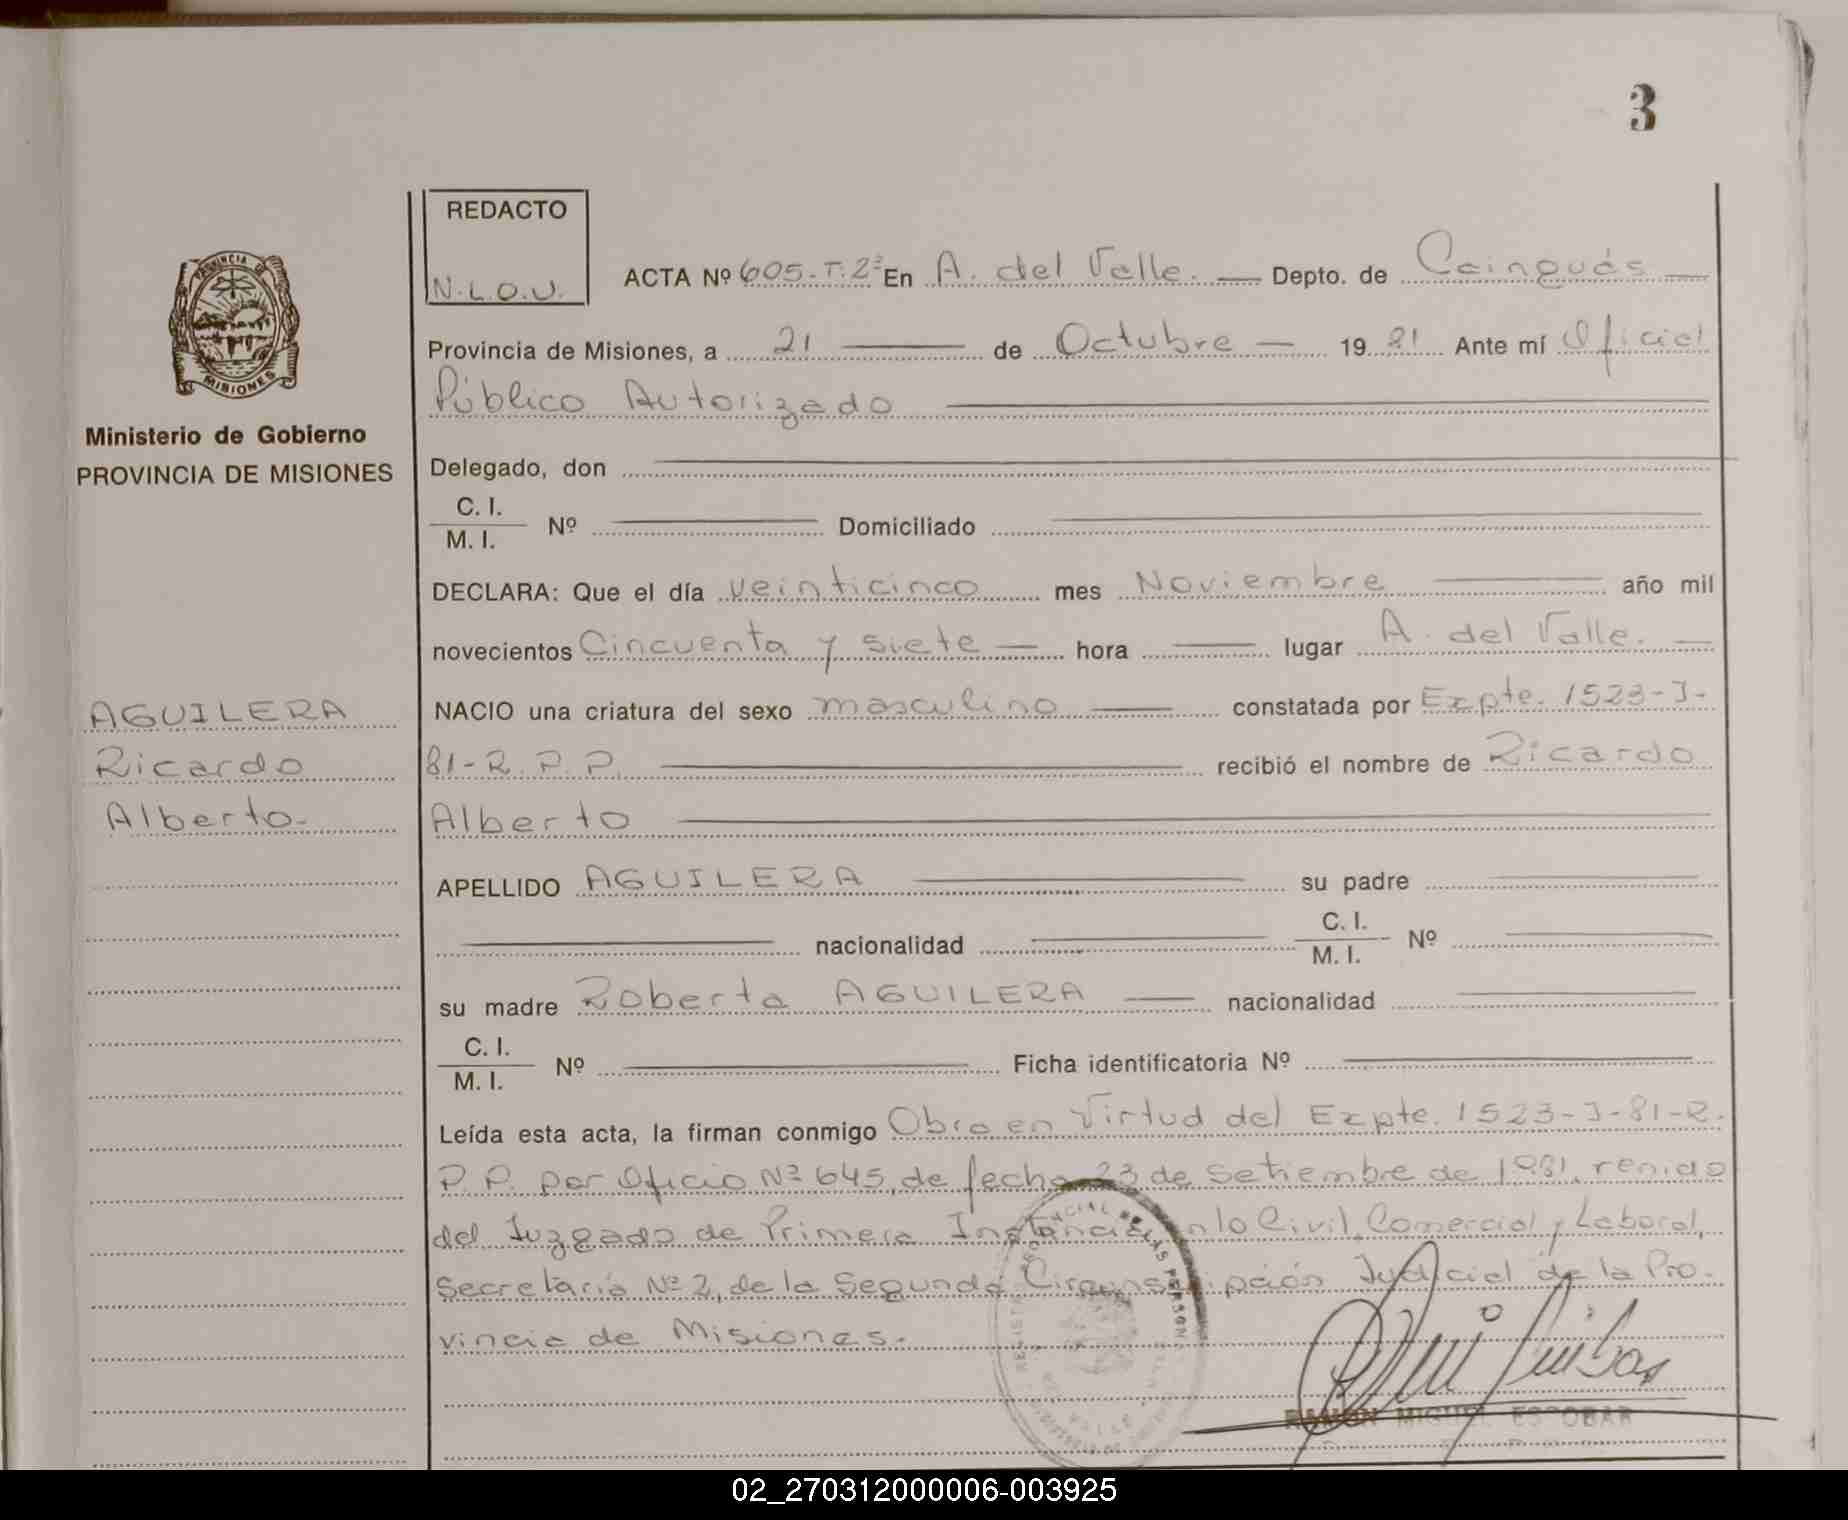 3
REDACTO
N.L.O.U.
ACTA Nº 605-T.2º En A. del Valle. — Depto. de Cainguás —
PROVINCIA DE
MISIONES
Provincia de Misiones, a 21 — de Octubre — 19 81 Ante mí Oficial
Público Autorizado
Ministerio de Gobierno
PROVINCIA DE MISIONES
Delegado, don
C. I.
M. I. Nº Domiciliado
DECLARA: Que el día veinticinco mes Noviembre — año mil
novecientos Cincuenta y siete — hora — lugar A. del Valle. —
AGUILERA
Ricardo
Alberto-
NACIO una criatura del sexo masculino — constatada por Expte. 1523-J-
81-R.P.P. — recibió el nombre de Ricardo
Alberto
APELLIDO AGUILERA — su padre —
— nacionalidad — C. I.
M. I. Nº —
su madre Roberta AGUILERA — nacionalidad —
C. I.
M. I. Nº — Ficha identificatoria Nº —
Leída esta acta, la firman conmigo Obra en Virtud del Expte. 1523-J-81-R.
P.P. por Oficio Nº 645, de fecha 23 de Setiembre de 1981, renido
del Juzgado de Primera Instancia en lo Civil, Comercial y Laboral,
Secretaria Nº 2, de la Segunda Circunscripción Judicial de la Pro-
vincia de Misiones.-
RAMON MIGUEL ESCOBAR
02_270312000006-003925